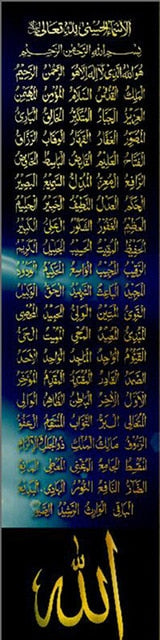 الأسماء الحسنى لله تعالى
بسم الله الرحمن الرحيم
هو الله الذي لا إله إلا هو الرحمن الرحيم
الملك القدوس السلام المؤمن المهيمن
العزيز الجبار المتكبر الخالق البارئ
المصور الغفار القهار الوهاب الرزاق
الفتاح العليم القابض الباسط الخافض
الرافع المعز المذل السميع البصير
الحكم العدل اللطيف الخبير الحليم
العظيم الغفور الشكور العلي الكبير
الحفيظ المقيت الحسيب الجليل الكريم
الرقيب المجيب الواسع الحكيم الودود
المجيد الباعث الشهيد الحق الوكيل
القوي المتين الولي الحميد المحصي
المبدئ المعيد المحيي المميت الحي
القيوم الواجد الماجد الواحد الأحد
الصمد القادر المقتدر المقدم المؤخر
الأول الآخر الظاهر الباطن الوالي
المتعالي البر التواب المنتقم العفو
الرؤوف مالك الملك ذو الجلال والإكرام
المقسط الجامع الغني المغني المانع
الضار النافع النور الهادي البديع
الباقي الوارث الرشيد الصبور
الله